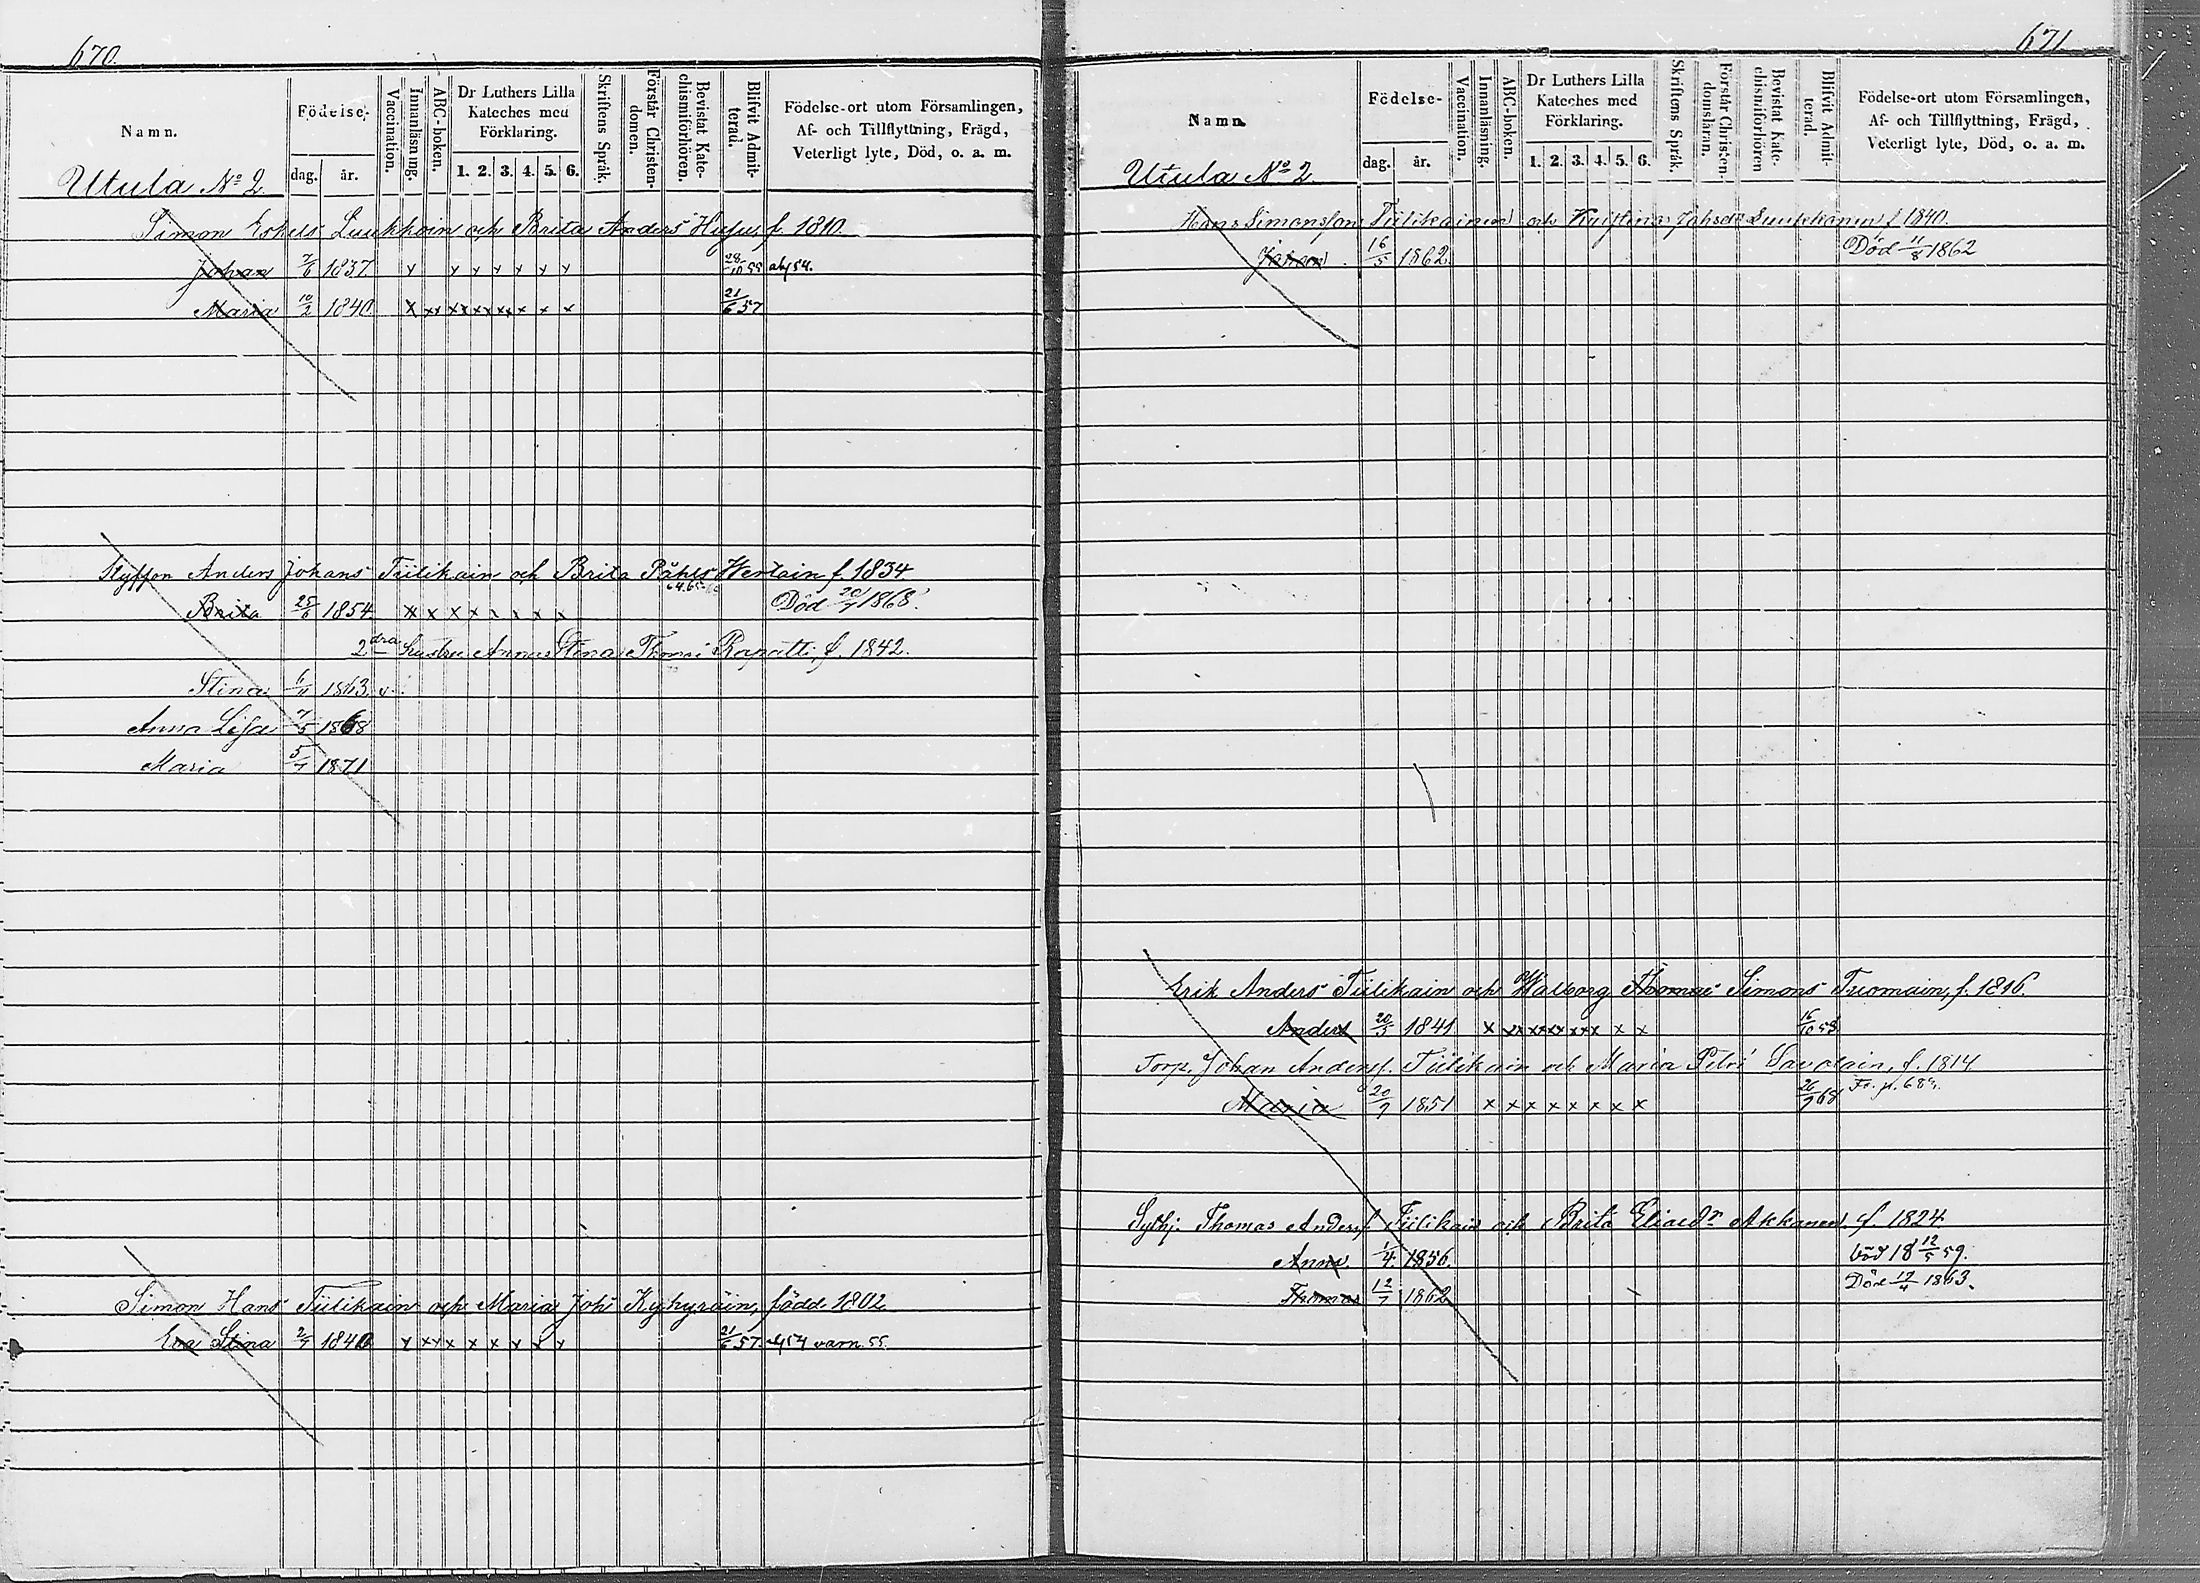 670.
Namn.
Födelse-
dag. år.
Vaccination.
Innanläsning.
ABC-boken.
Dr Luthers Lilla Kateches med Förklaring.
1. 2. 3. 4. 5. 6.
Skriftens Språk.
Förstår Christendomen.
Bevistat Katechismiförhören.
Blifvit Admitterad.
Födelse-ort utom Församlingen,
Af- och Tillflyttning, Frägd,
Veterligt lyte, Död, o. a. m.
Utula No 2
Simon Eskels Luukkain och Brita Anders Husu, f. 1810.
Johan 7/6 1837 x x x x x x x 28/10 55
Maria 10/2 1840 x xx xx xx xx x x x 21/6 57
Anders Johans Tiilikain och Brita Påhls Wertain f. 1834
Brita 25/6 1854. x x x x x x x x Död 20/7 1868.
2dra hustru Anna Stina Thoms Rapatti, f. 1842.
Stina 1863
Anna Lisa 7/5 1868
Maria 5/7 1871
Simon Hans Tiilikain och Maria Johs Kyhyräin, född 1802
Eva Stina 2/7 1840 x xx x x x x x x 21/6 57. varn. 55.
671
Namn.
Födelse-
dag. år.
Vaccination.
Innanläsning.
ABC-boken.
Dr Luthers Lilla Kateches med Förklaring.
1. 2. 3. 4. 5. 6.
Skriftens Språk.
Förstår Christendomsläran.
Bevistat Katechismiförhören
Blifvit Admitterad.
Födelse-ort utom Församlingen,
Af- och Tillflyttning, Frägd,
Veterligt lyte, Död, o. a. m.
Utula No 2
Hans Simonsson Tiilikainen och Kristina f 1840.
16/5 1862. Död 11/8 1862
Erik Anders Tiilikain och Walborg Thomas Simons Tuomain, f. 1816.
Anders 20/3 1841 x xx xx xx xx x x 16/10 58
Torp. Johan Andersf. Tiilikain och Maria Petri Savolain, f. 1814
Maria 20/9 1851 x x x x x x x x 26/9 68
Thomas Andersf Tiilikain och Brita Eliaedr Akkanen f. 1824
Anna 1/4. 1856. död 18 12/5 59.
Thomas 12/7 1862 Död 1863.